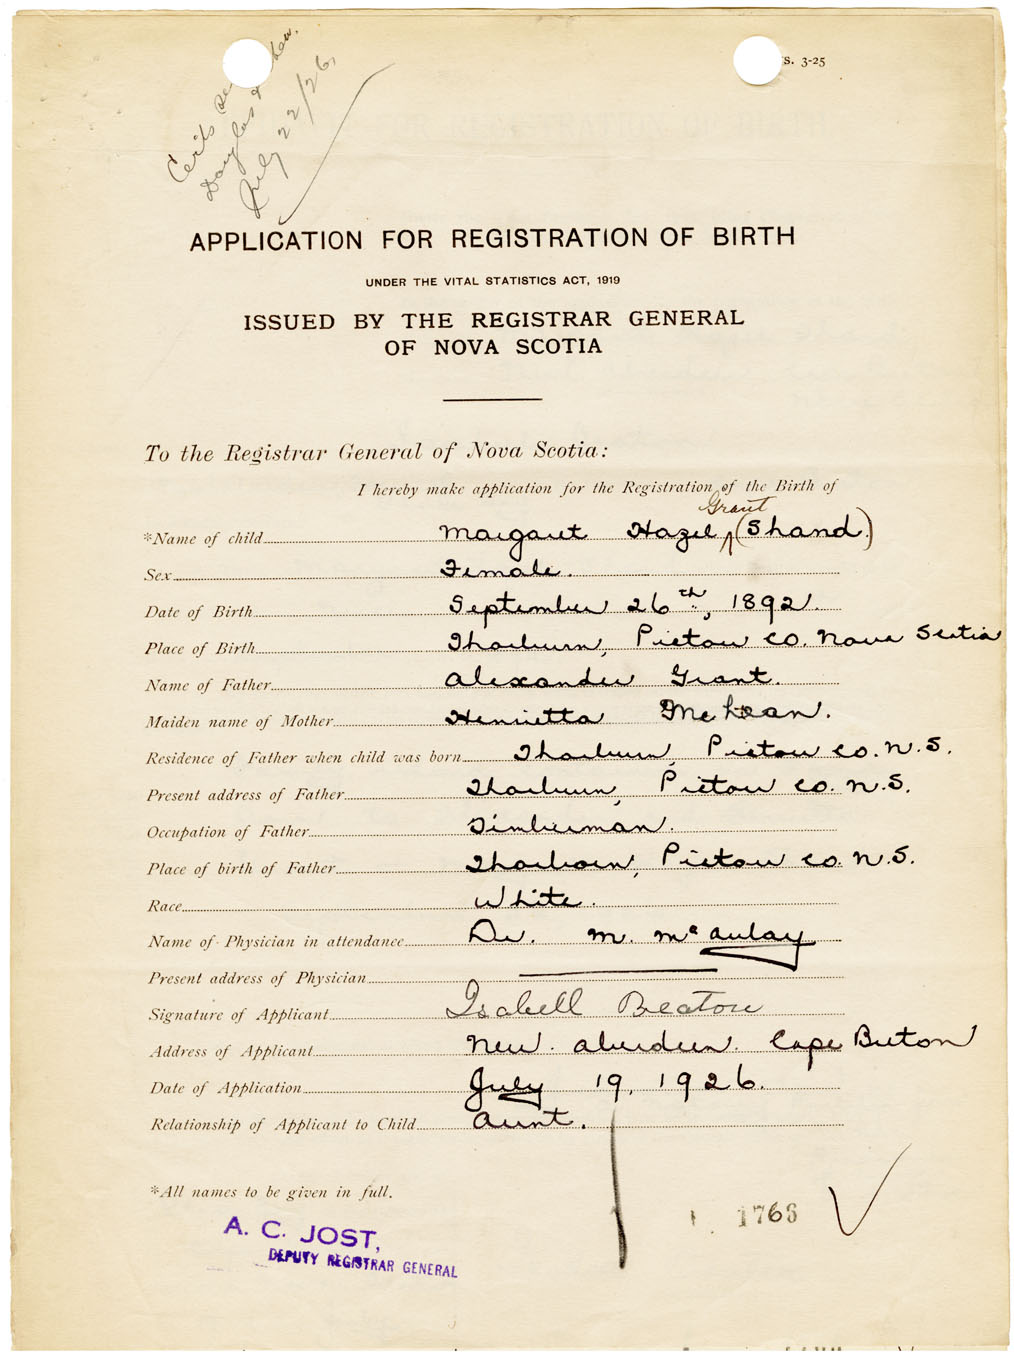 Certs
Douglas &
July 22/26.
S. 3-25
APPLICATION FOR REGISTRATION OF BIRTH
UNDER THE VITAL STATISTICS ACT, 1919
ISSUED BY THE REGISTRAR GENERAL
OF NOVA SCOTIA
To the Registrar General of Nova Scotia:
I hereby make application for the Registration of the Birth of
Grant
*Name of child Margaret Hazel, (Shand.)
Sex Female.
Date of Birth September 26th, 1892.
Place of Birth Thorburn, Pictou Co. Nova Scotia
Name of Father Alexander Grant.
Maiden name of Mother Henrietta McLean.
Residence of Father when child was born Thorburn, Pictou Co. N.S.
Present address of Father Thorburn, Pictou Co. N.S.
Occupation of Father Timberman.
Place of birth of Father Thorburn, Pictou Co. N.S.
Race White.
Name of Physician in attendance Dr. M. McAulay
Present address of Physician
Signature of Applicant Isabell Beaton
Address of Applicant New Aberdeen. Cape Breton
Date of Application July 19, 1926.
Relationship of Applicant to Child Aunt.
*All names to be given in full.
1763
A. C. JOST,
DEPUTY REGISTRAR GENERAL